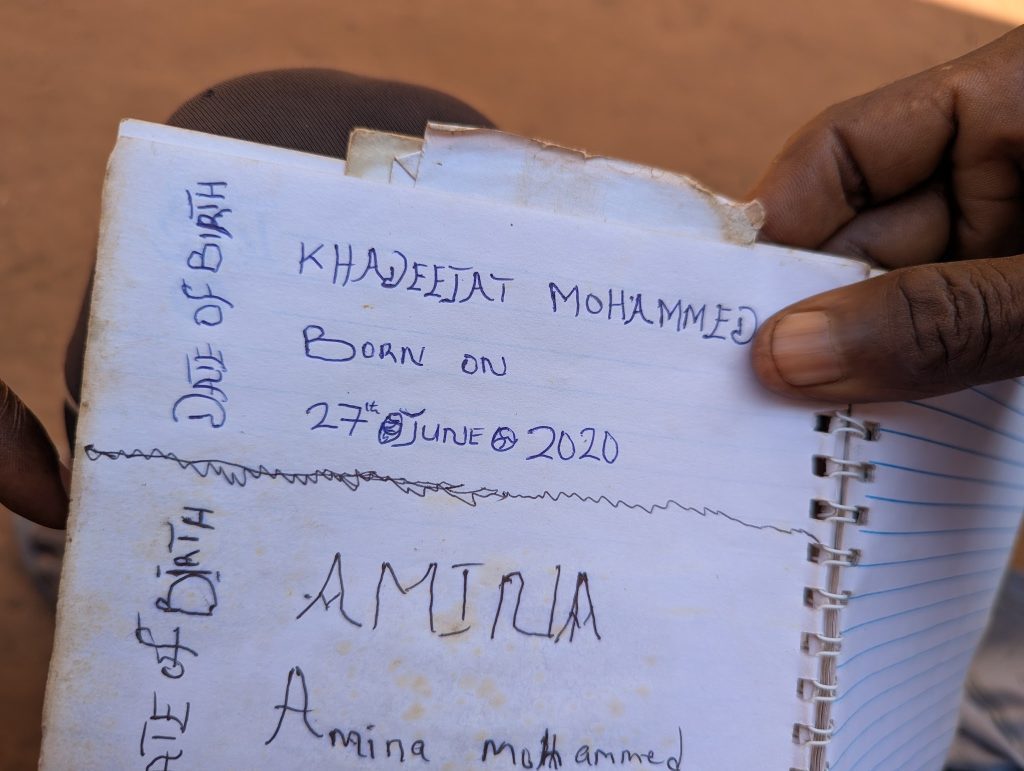 DATE OF BIRTH
KHADEEJAT MOHAMMED
BORN ON
27th JUNE 2020
DATE of BIRTH
AMINA
Amina mohammed